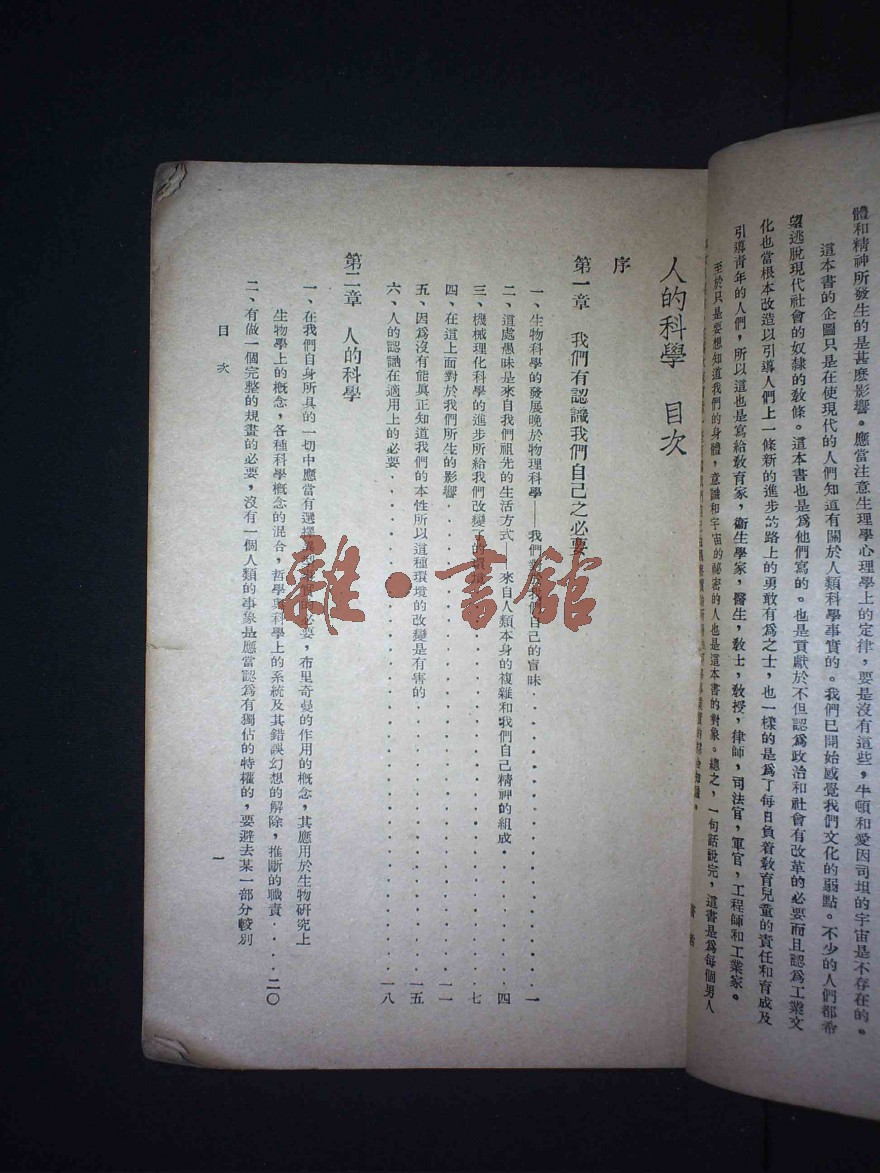 體和精神所發生的是甚麼影響。應當注意生理學心理學上的定律，要是沒有這些，牛頓和愛因司坦的宇宙是不存在的。
這本書的企圖只是在使現代的人們知道有關於人類科學事實的。我們已開始感覺我們文化的弱點。不少的人們都希
望逃脫現代社會的奴隸的敎條。這本書也是爲他們寫的。也是貢獻於不但認爲政治和社會有改革的必要而且認爲工業文
化也當根本改造以引導人們上一條新的進步的路上的勇敢有爲之士，也一樣的是爲了每日負着敎育兒童的責任和育成及
引導靑年的人們，所以這也是寫給敎育家，衞生學家，醫生，敎士，敎授，律師，司法官，軍官，工程師和工業家。
至於只是要想知道我們的身體，意識和宇宙的祕密的人也是這本書的對象。總之，一句話說完，這書是爲每個男人
人的科學　目次
序
第一章　我們有認識我們自己之必要
一、生物科學的發展晚於物理科學——我們對於我們自己的盲昧 一
二、這處愚昧是來自我們祖先的生活方式——來自人類本身的複雜和我們自己精神的組成 四
三、機械理化科學的進步所給我們改變了的環境 七
四、在這上面對於我們所生的影響 一一
五、因爲沒有能眞正知道我們的本性所以這種環境的改變是有害的 一五
六、人的認識在適用上的必要 一八
第二章　人的科學
一、在我們自身所具的一切中應當有選擇的必要，布里奇曼的作用的概念，其應用於生物硏究上
生物學上的概念，各種科學概念的混合，哲學與科學上的系統及其錯誤幻想的解除，推斷的職責 二〇
二、有做一個完整的規畫的必要，沒有一個人類的事象是應當認爲有獨佔的特權的，要避去某一部分較別
目　次
一
雜·書館